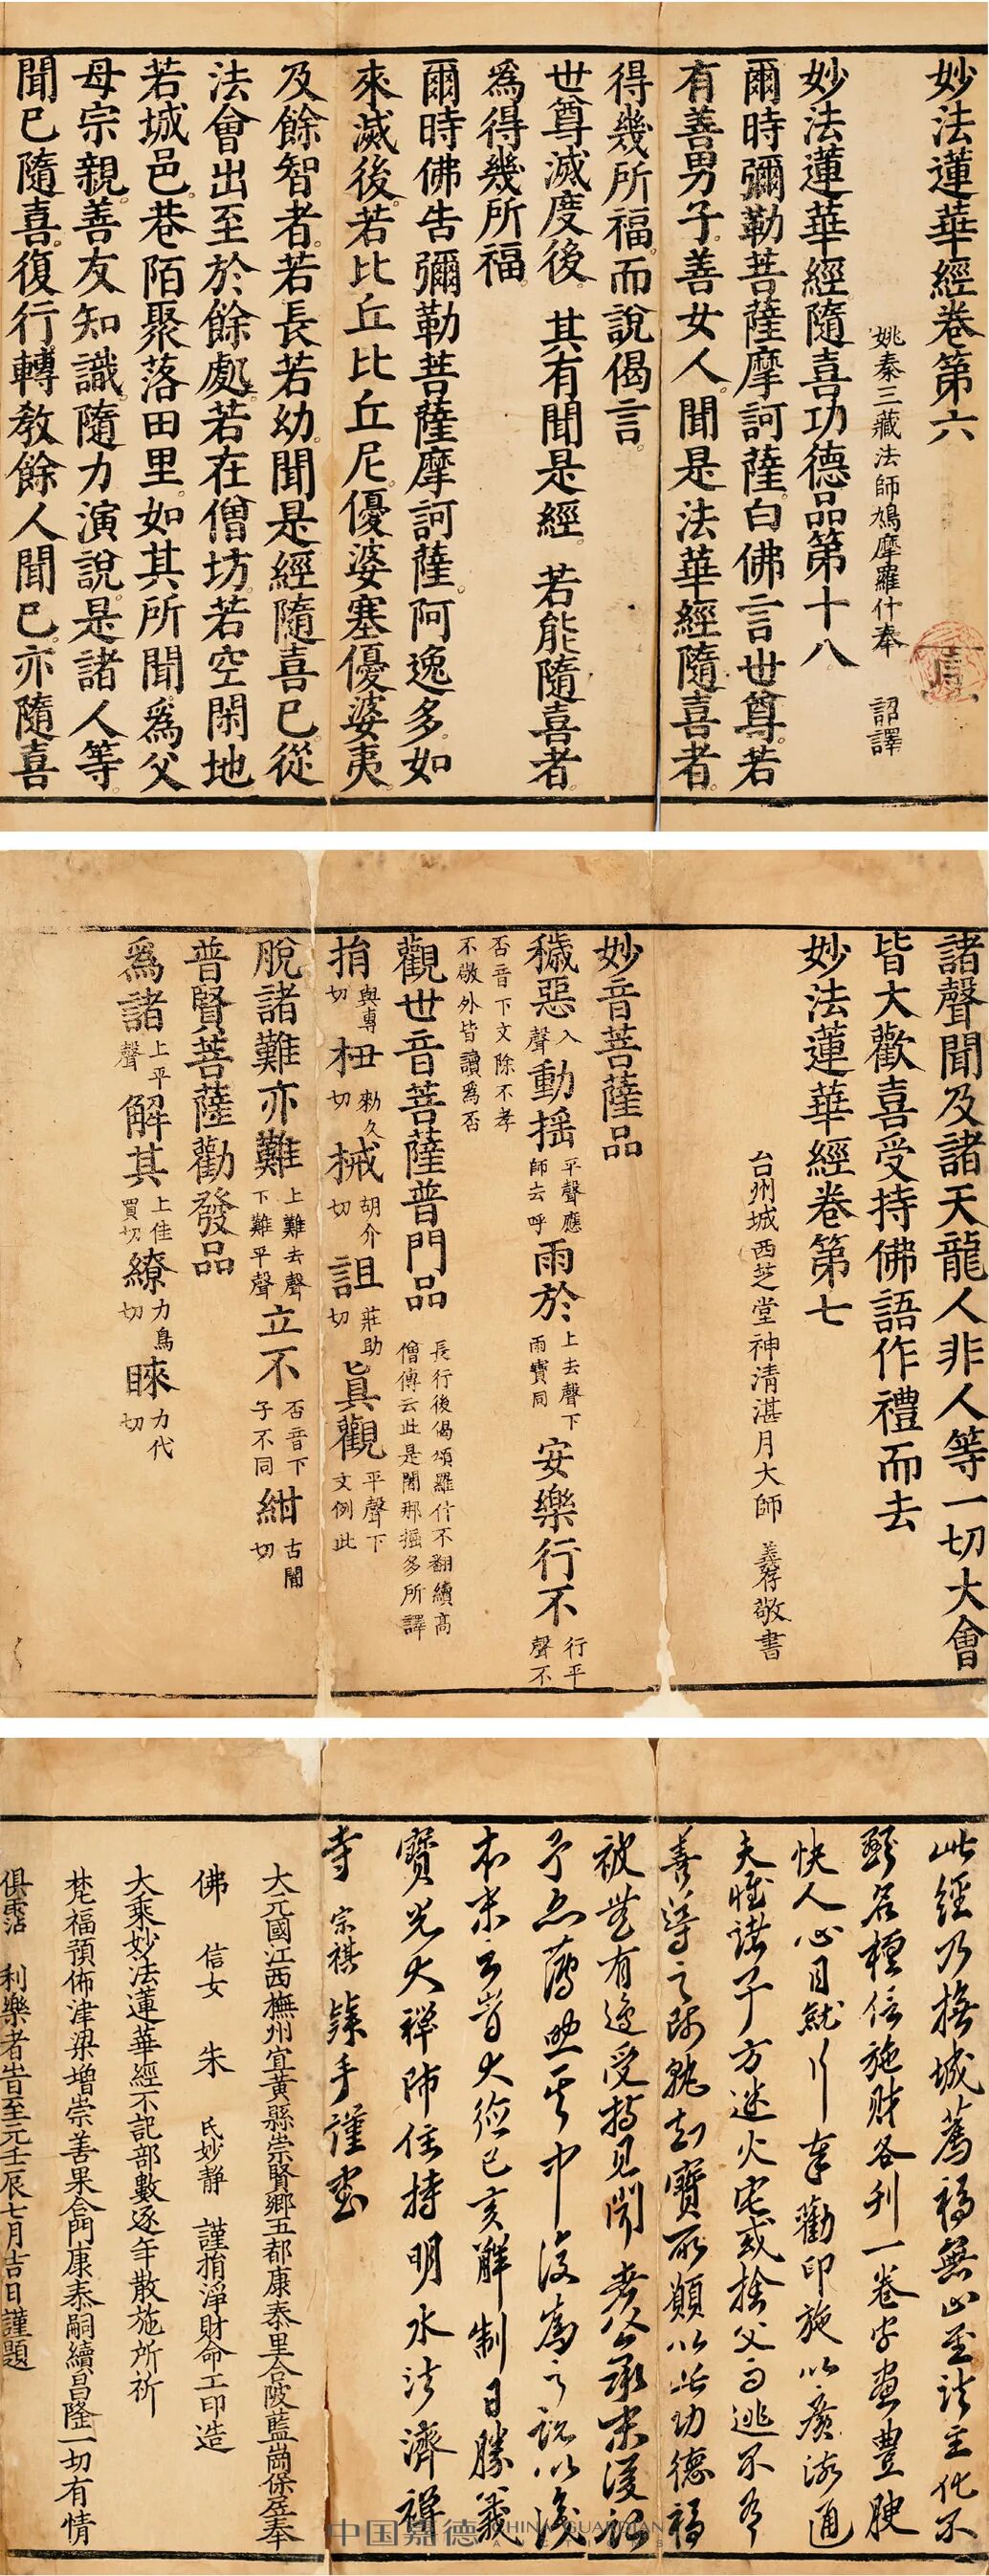 妙法蓮華經卷第六
姚秦三藏法師鳩摩羅什奉 詔譯
妙法蓮華經隨喜功德品第十八
爾時彌勒菩薩摩訶薩白佛言世尊若
有善男子善女人聞是法華經隨喜者
得幾所福而說偈言
世尊滅度後 其有聞是經 若能隨喜者
爲得幾所福
爾時佛告彌勒菩薩摩訶薩阿逸多如
來滅後若比丘比丘尼優婆塞優婆夷
及餘智者若長若幼聞是經隨喜已從
法會出至於餘處若在僧坊若空閑地
若城邑巷陌聚落田里如其所聞爲父
母宗親善友知識隨力演說是諸人等
聞已隨喜復行轉教餘人聞已亦隨喜
諸聲聞及諸天龍人非人等一切大會
皆大歡喜受持佛語作禮而去
妙法蓮華經卷第七
台州城西芝堂神清湛月大師 義存敬書
妙音菩薩品
穢惡入聲動搖平聲應師云呼雨於上去聲下雨寶同安樂行不行平聲不
否音下文除不孝不敬外皆讀爲否
觀世音菩薩普門品長行後偈頌羅什不翻續高僧傳云此是闍那掘多所譯
捐與專切杻勑久切械胡介切詛莊助切眞觀平聲下文例此
脫諸難亦難上難去聲下難平聲立不否音下子不同紺古闇切
普賢菩薩勸發品
爲諸上平聲解其上佳買切繚力鳥切睞力代切
此經乃撫城薦福無山至主化
名種信施財各刋一卷字畫豊腴
快人心目就奉勸印施以廣流通
夫惟諸子方迷火宅或捨父而逃不有
善導之孰知寶所願以此功德福
被有邊受持見聞者公承末後記
予中復爲之說以
本末云大德己亥解制日勝義
寶光大禪師住持明水法濟禪
寺 宗祺 手謹書
大元國江西撫州宜黃縣崇賢鄉五都康泰里合陂藍崗保居奉
佛 信女 朱 氏妙靜 謹捐淨財命工印造
大乘妙法蓮華經不記部數逐年散施所祈
福預佈津梁增崇善果合門康泰嗣續昌隆一切有情
俱霑 利樂者 至元壬辰七月吉日謹題
中国嘉德 CHINA GUARDIAN